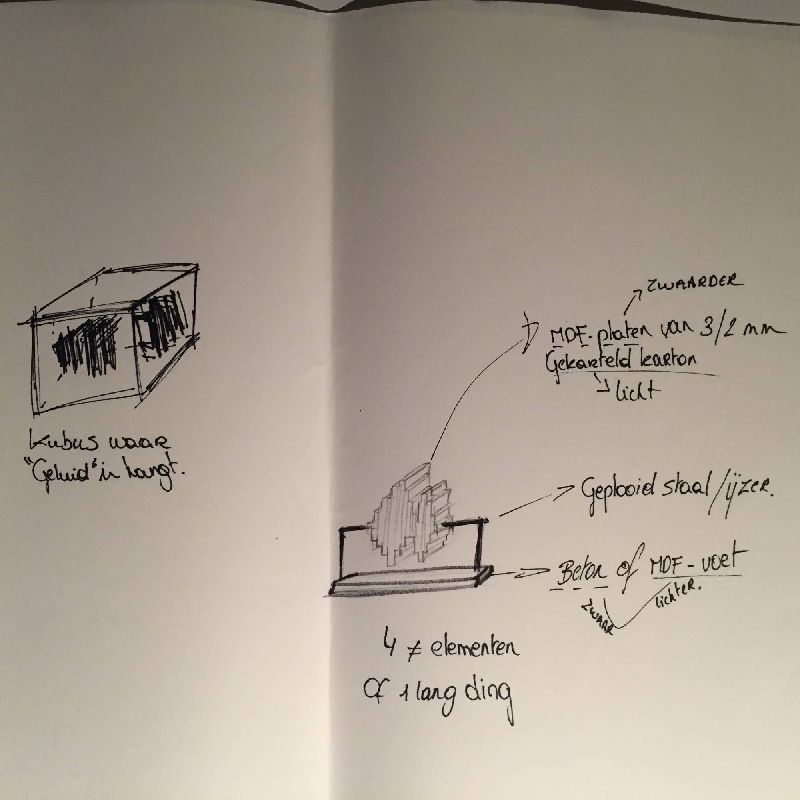 Kubus waar
"Geluid" in hangt.
ZWAARDER
MDF-platen van 3/2 mm
Gekarteld karton
licht
Geplooid staal/ijzer.
Beton of MDF-voet
zwaar
lichter.
4 ≠ elementen
OF 1 lang ding